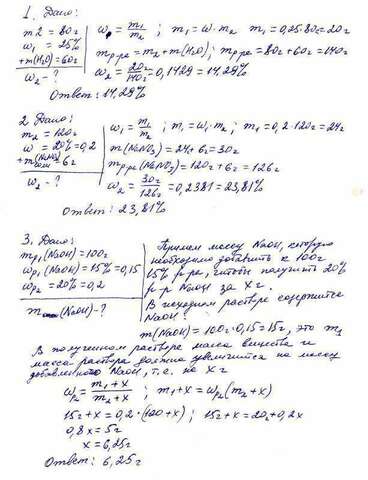 1. Дано:
m2 = 80г
ω₁ = 25%
+m(H₂O) = 60г
ω₂ - ?
ω = m₁/m₂ ; m₁ = ω·m₂ ; m₁ = 0,25·80г = 20г
mр-ра = m₂ + m(H₂O); mр-ра = 80г + 60г = 140г
ω₂ = 20г/140г = 0,1429 = 14,29%
Ответ: 14,29%
2 Дано:
m₂ = 120г
ω = 20% = 0,2
+m(NaNO₃) = 6г
ω₂ - ?
ω₁ = m₁/m₂ ; m₁ = ω₁·m₂ ; m₁ = 0,2·120г = 24г
m(NaNO₃) = 24 + 6г = 30г
mр-ра(NaNO₃) = 120г + 6г = 126г
ω₂ = 30г/126г = 0,2381 = 23,81%
Ответ: 23,81%
3. Дано:
mр₁(NaOH) = 100г
ωр₁(NaOH) = 15% = 0,15
ωр₂ = 20% = 0,2
m(NaOH) - ?
Примем массу NaOH, которую
необходимо добавить к 100г
15% р-ра, чтобы получить 20%
р-р NaOH за x г.
В исходном растворе содержится
NaOH:
m(NaOH) = 100г·0,15 = 15г, это m₁
В полученном растворе масса вещества и
масса раствора должна увеличится на массу
добавленного NaOH, т.е. на x г
ωр₂ = m₁+x/m₂+x ; m₁+x = ωр₂(m₂+x)
15г+x = 0,2·(100+x) ; 15г+x = 20г+0,2x
0,8x = 5г
x = 6,25г
Ответ: 6,25г